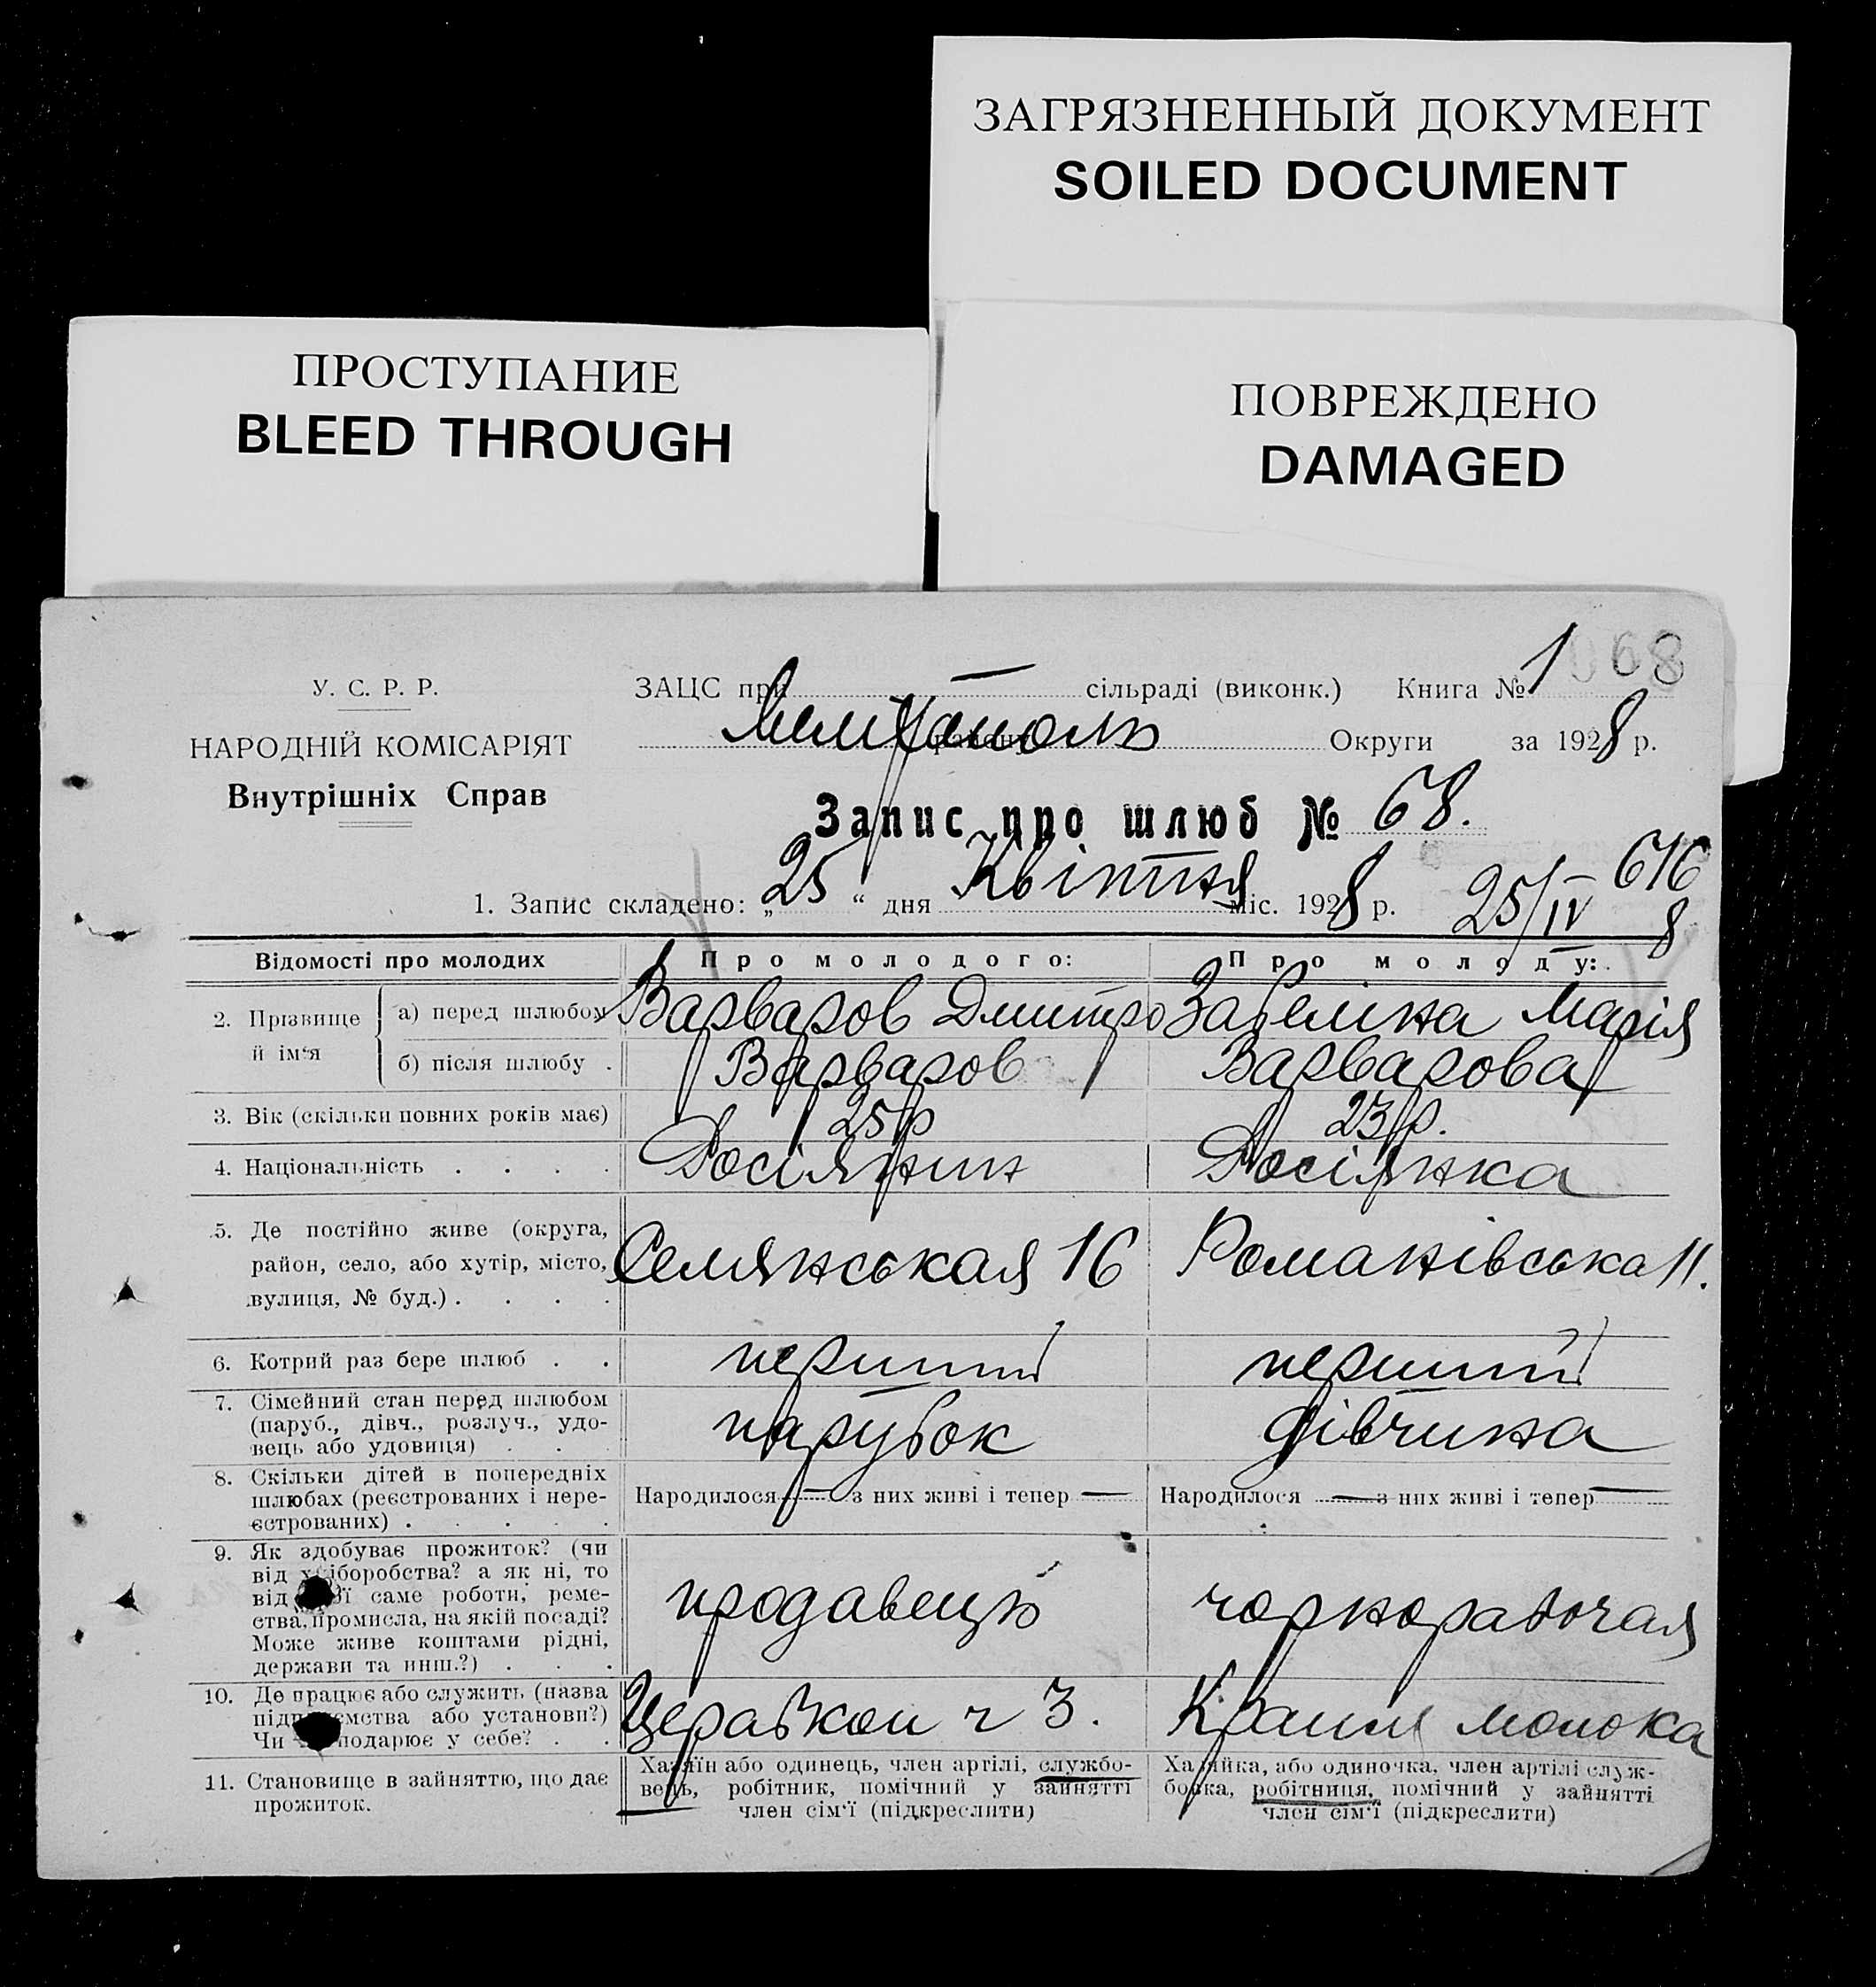 ЗАГРЯЗНЕННЫЙ ДОКУМЕНТ
SOILED DOCUMENT
ПРОСТУПАНИЕ
BLEED THROUGH
ПОВРЕЖДЕНО
DAMAGED
У. С. Р. Р.
НАРОДНІЙ КОМІСАРІЯТ
Внутрішніх Справ
ЗАЦС при сільраді (виконк.) Книга № 1 068
району Округи за 1928 р.
Запис про шлюб № 68.
1. Запис складено: „25“ дня Квітня міс. 1928 р. 25/IV 8
616
Відомості про молодих
Про молодого:
Про молоду:
2. Прізвище й ім‘я
а) перед шлюбом
Варваров Дмитро
Забеліна Марія
б) після шлюбу .
Варваров
Варварова
3. Вік (скільки повних років має)
25 р
23 р.
4. Національність . . . .
Росіянин
Росіянка
5. Де постійно живе (округа,
район, село, або хутір, місто,
вулиця, № буд.) . . . .
16
Романівська 11.
6. Котрий раз бере шлюб . .
перший
перший
7. Сімейний стан перед шлюбом
(паруб., дівч., розлуч., удо-
вець або удовиця) . . .
парубок
дівчина
8. Скільки дітей в попередніх
шлюбах (реєстрованих і нере-
єстрованих) . . . . .
Народилося — з них живі і тепер —
Народилося — з них живі і тепер —
9. Як здобуває прожиток? (чи
від хліборобства? а як ні, то
від саме роботи, реме-
ства, промисла, на якій посаді?
Може живе коштами рідні,
держави та инш.?) . . .
продавець
чорнорабочая
10. Де працює або служить (назва
або установи?)
Чи у себе? . .
Церабкоп ч 3.
молока
11. Становище в зайняттю, що дає
прожиток.
Хазяїн або одинець, член артілі, службо-
вець, робітник, помічний у зайнятті
член сім‘ї (підкреслити)
Хазяйка, або одиночка, член артілі служ-
бовка, робітниця, помічний у зайнятті
член сім‘ї (підкреслити)